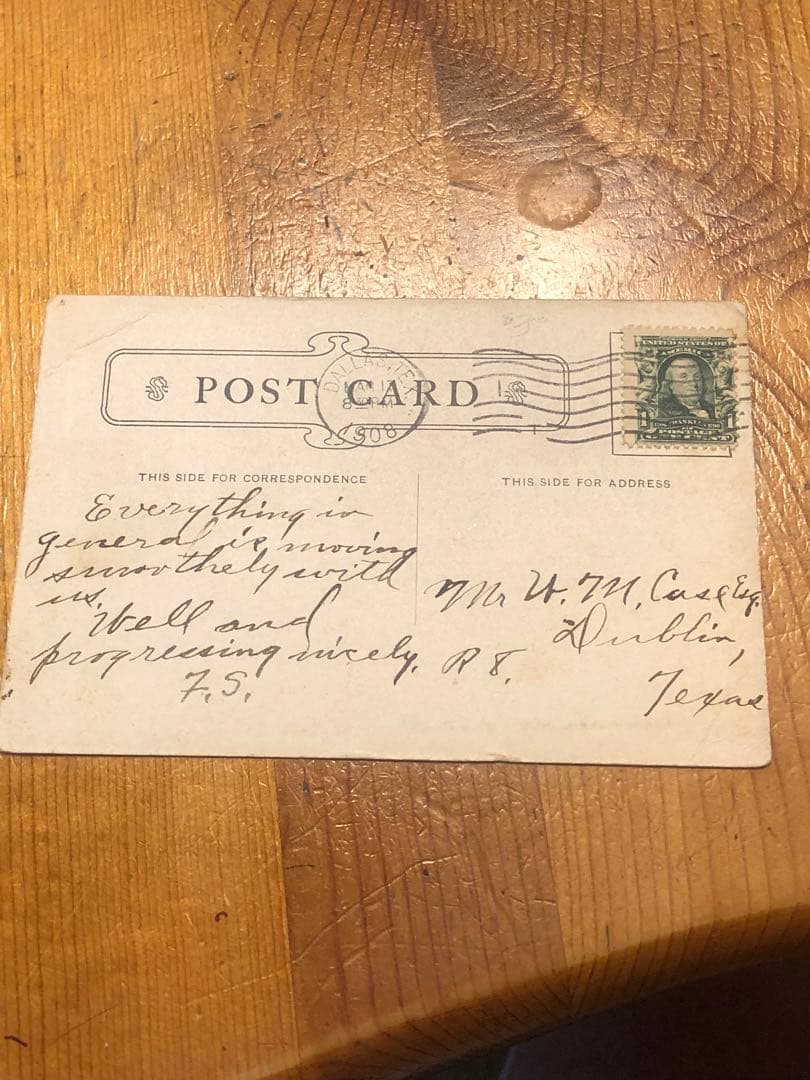 POST CARD
DALLAS, TEX.
8 - PM
1908
1
UNITED STATES OF
AMERICA
FRANKLIN
1
POSTAGE
THIS SIDE FOR CORRESPONDENCE
Everything in
general is moving
smoothely with
us.
Well and
progressing nicely.
F.S.
THIS SIDE FOR ADDRESS
Mr W. M. Case Esq.
Dublin,
R
Texas